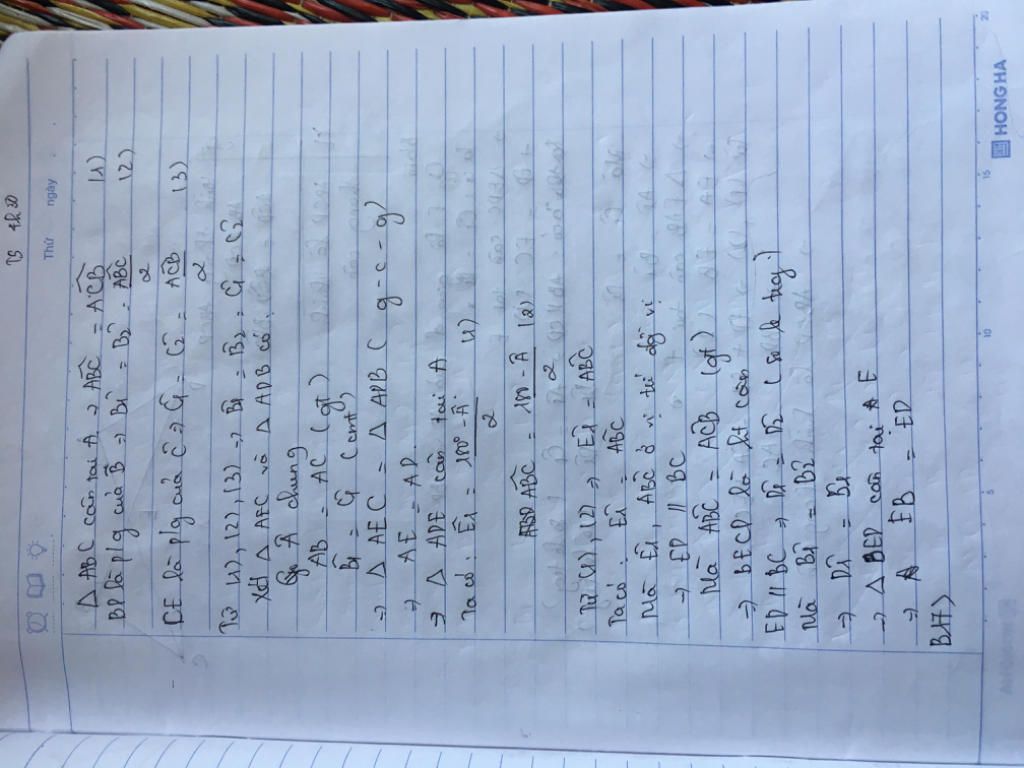 Thứ ngày
Δ ABC cân tại A → ABC^ = ACB^ (1)
BD là p/g của B^ → B1^ = B2^ = ABC^/2 (2)
CE là p/g của C^ → C1^ = C2^ = ACB^/2 (3)
Từ (1), (2), (3) → B1^ = B2^ = C1^ = C2^
Xét Δ AEC và Δ ADB có:
A^ chung
AB = AC (gt)
B1^ = C1^ (cmt)
→ Δ AEC = Δ ADB (g - c - g)
→ AE = AD
→ Δ ADE cân tại A
Ta có: E1^ = 180° - A^/2 (1)
ABC^ = 180 - A^/2 (2)
Từ (1), (2) → E1^ = ABC^
Ta có: E1^ = ABC^
Mà E1^, ABC^ ở vị trí đồng vị
→ ED // BC
Mà ABC^ = ACB^ (gt)
→ BECD là ht cân
ED // BC → D1^ = B2^ (so le trong)
Mà B1^ = B2^
→ D1^ = B1^
→ Δ BED cân tại E
→ EB = ED
BH>
HONG HA
5
10
15
20